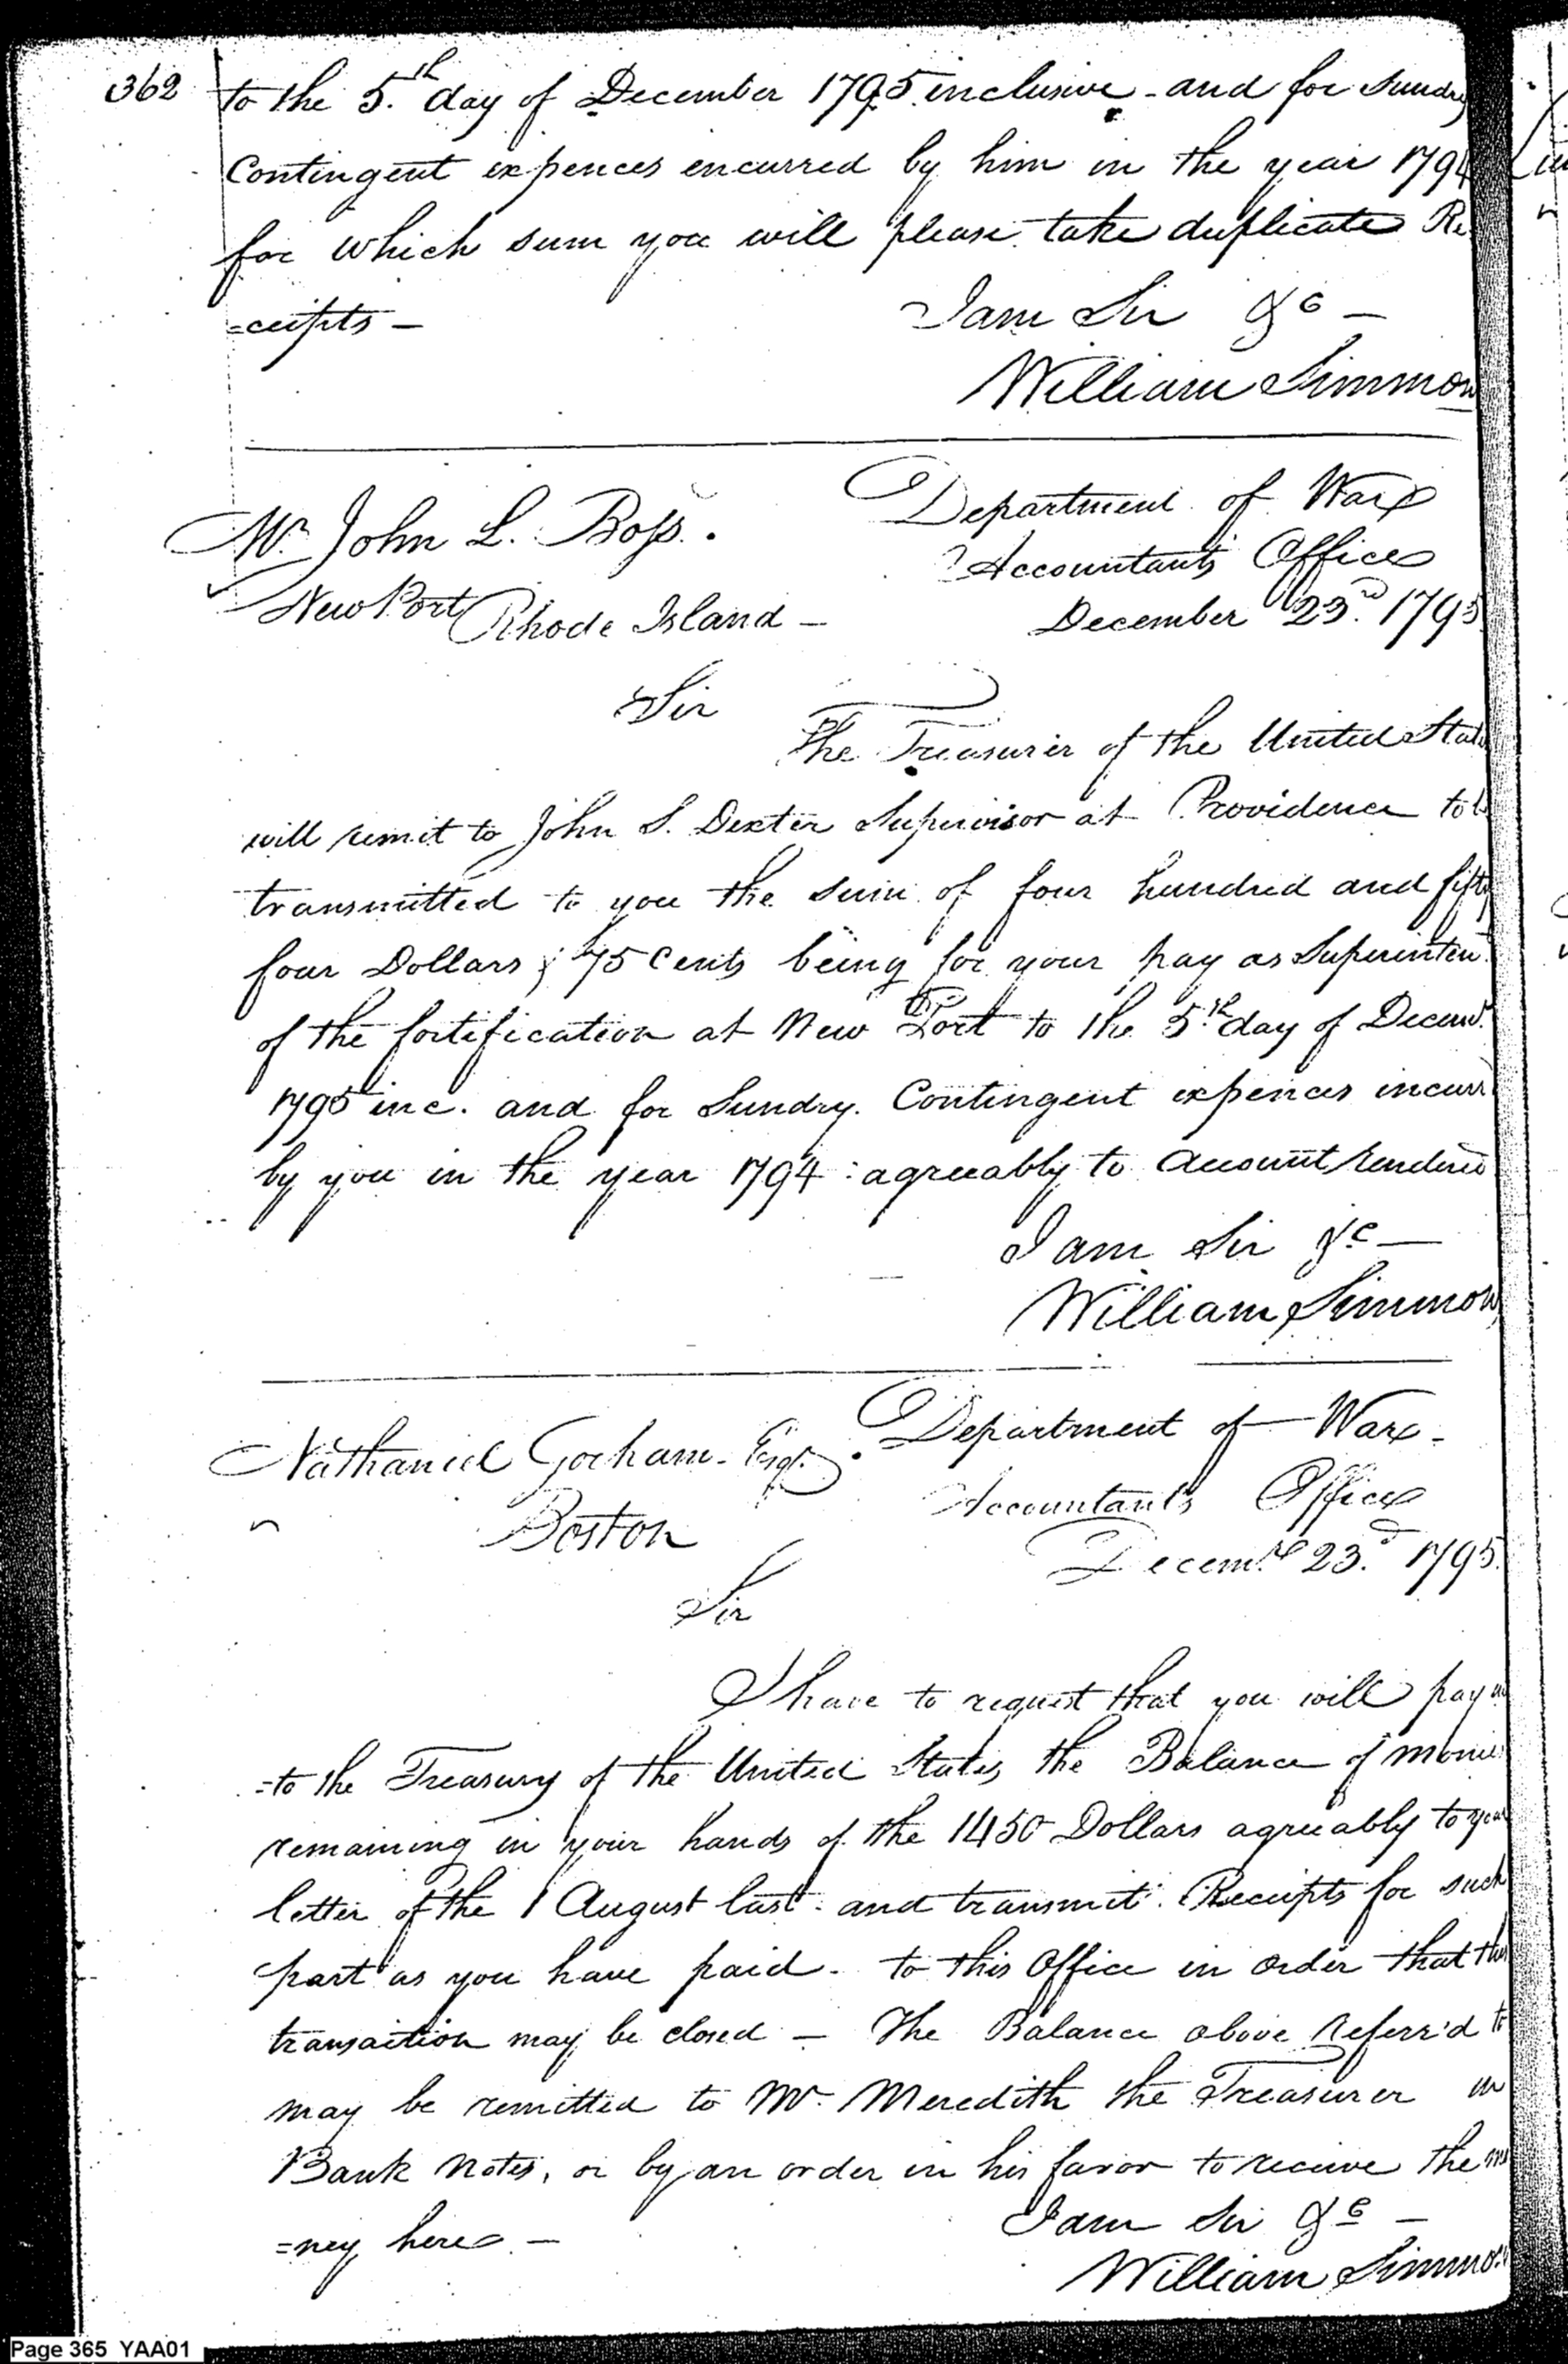 362
to the 5.th day of December 1795 inclusive - and for Sundry
Contingent expences encurred by him in the year 1794
for which sum you will please take duplicate Re
=ceipts -
I am Sir &c -
William Simmon
Mr. John L. Boss.
Department of War
Accountants Office
New Port Rhode Island -
December 23.d 1795
Sir
The Treasurer of the United State
will remit to John S. Dexter Supervisor at Providence to b
transmitted to you the sum of four hundred and fifty
four Dollars & 75 Cents being for your pay as Superinten
of the fortification at New Port to the 5.th day of Decem.
1795 inc. and for Sundry Contingent expences incurr
by you in the year 1794 : agreeably to account rendered
I am Sir &c -
William Simmon
Nathaniel Gorham Esqr.
Department of War -
Accountants Office
Boston
Decemr. 23.d 1795.
Sir
I have to request that you will pay in
=to the Treasury of the United States the Balance of monie
remaining in your hands of the 1450 Dollars agreeably to your
letter of the 1 August last. and transmit. Receipts for such
part as you have paid - to this Office in order that this
transaction may be closed - The Balance above referr'd to
may be remitted to Mr. Meredith the Treasurer in
Bank notes, or by an order in his favor to receive the mo
=ney here -
I am Sir &c -
William Simmon
Page 365 YAA01